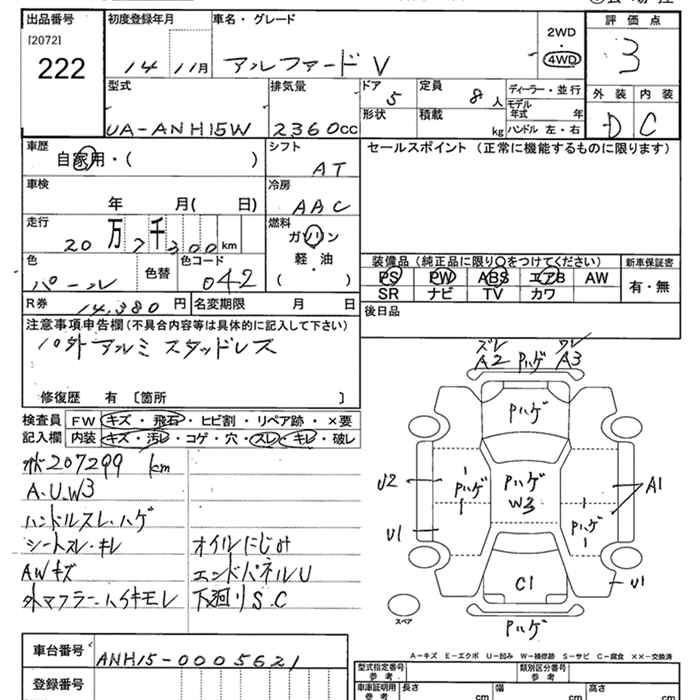 出品番号
[2072]
222
初度登録年月
14 11月
車名・グレード
アルファード V
2WD
・
4WD
評価点
3
型式
UA-ANH15W
排気量
2360cc
ドア
5
形状
定員
8人
積載
kg
ディーラー・並行
モデル
年式 年
ハンドル 左・右
外装 内装
D C
車歴
自家用・( )
シフト
AT
セールスポイント (正常に機能するものに限ります)
車検
年 月( 日)
冷房
AAC
走行
20万7千300km
燃料
ガソリン
軽・油
( )
色
パール
色替
色コード
042
装備品 (純正品に限り○をつけてください)
PS PW ABS エアB AW
SR ナビ TV カワ
新車保証書
有・無
R券 14,380円
名変期限 月 日
後日品
注意事項申告欄 (不具合内容等は具体的に記入して下さい)
パ外アルミ スタッドレス
修復歴 有 〔箇所 〕
検査員
記入欄
FW キズ・飛石・ヒビ割・リペア跡・×要
内装 キズ・汚レ・コゲ・穴・スレ・キレ・破レ
207299km
A.U.W3
ハンドルスレ.ハゲ
シートスレ.キレ
オイルにじみ
AWキズ
エンドパネルU
外マフラー.ハイキモレ
下廻りS.C
ズレ ワレ
A2 Pハゲ A3
Pハゲ
U2
Pハゲ
Pハゲ
W3
Pハゲ
A1
U1
C1
U1
スペア
Pハゲ
A－キズ E－エクボ U－凹み W－補修跡 S－サビ C－腐食 ××－交換済
車台番号 ANH15-0005621
登録番号
型式指定番号
参考
類別区分番号
参考
車庫証明用
参考
長さ cm
幅 cm
高さ cm